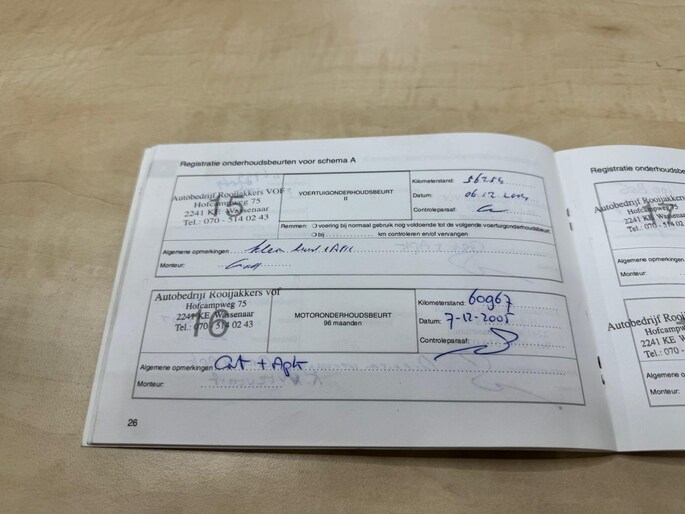 Registratie onderhoudsbeurten voor schema A
15
Autobedrijf Rooijakkers VOF
Hofcampweg 75
2241 KE Wassenaar
Tel.: 070 - 514 02 43
VOERTUIGONDERHOUDSBEURT
II
Kilometerstand:
Datum: 06.12.2004
Controleparaaf:
Remmen: voering bij normaal gebruik nog voldoende tot de volgende voertuigonderhoudsbeurt.
bij km controleren en/of vervangen
Algemene opmerkingen
Monteur:
16
Autobedrijf Rooijakkers vof
Hofcampweg 75
2241 KE Wassenaar
Tel.: 070 - 514 02 43
MOTORONDERHOUDSBEURT
96 maanden
Kilometerstand: 60967
Datum: 7-12-2005
Controleparaaf:
Algemene opmerkingen + Apk
Monteur:
26
Registratie onderhoudsbe
Autobedrijf Rooijakkers
Hofcampweg 75
2241 KE Wassenaar
Tel.: 070 - 514 02 43
Algemene opmerkingen
Monteur:
Autobedrijf Rooijakk
Hofcampweg 75
2241 KE Wassenaar
Tel.: 070 - 514 02 43
Algemene opmerk
Monteur: